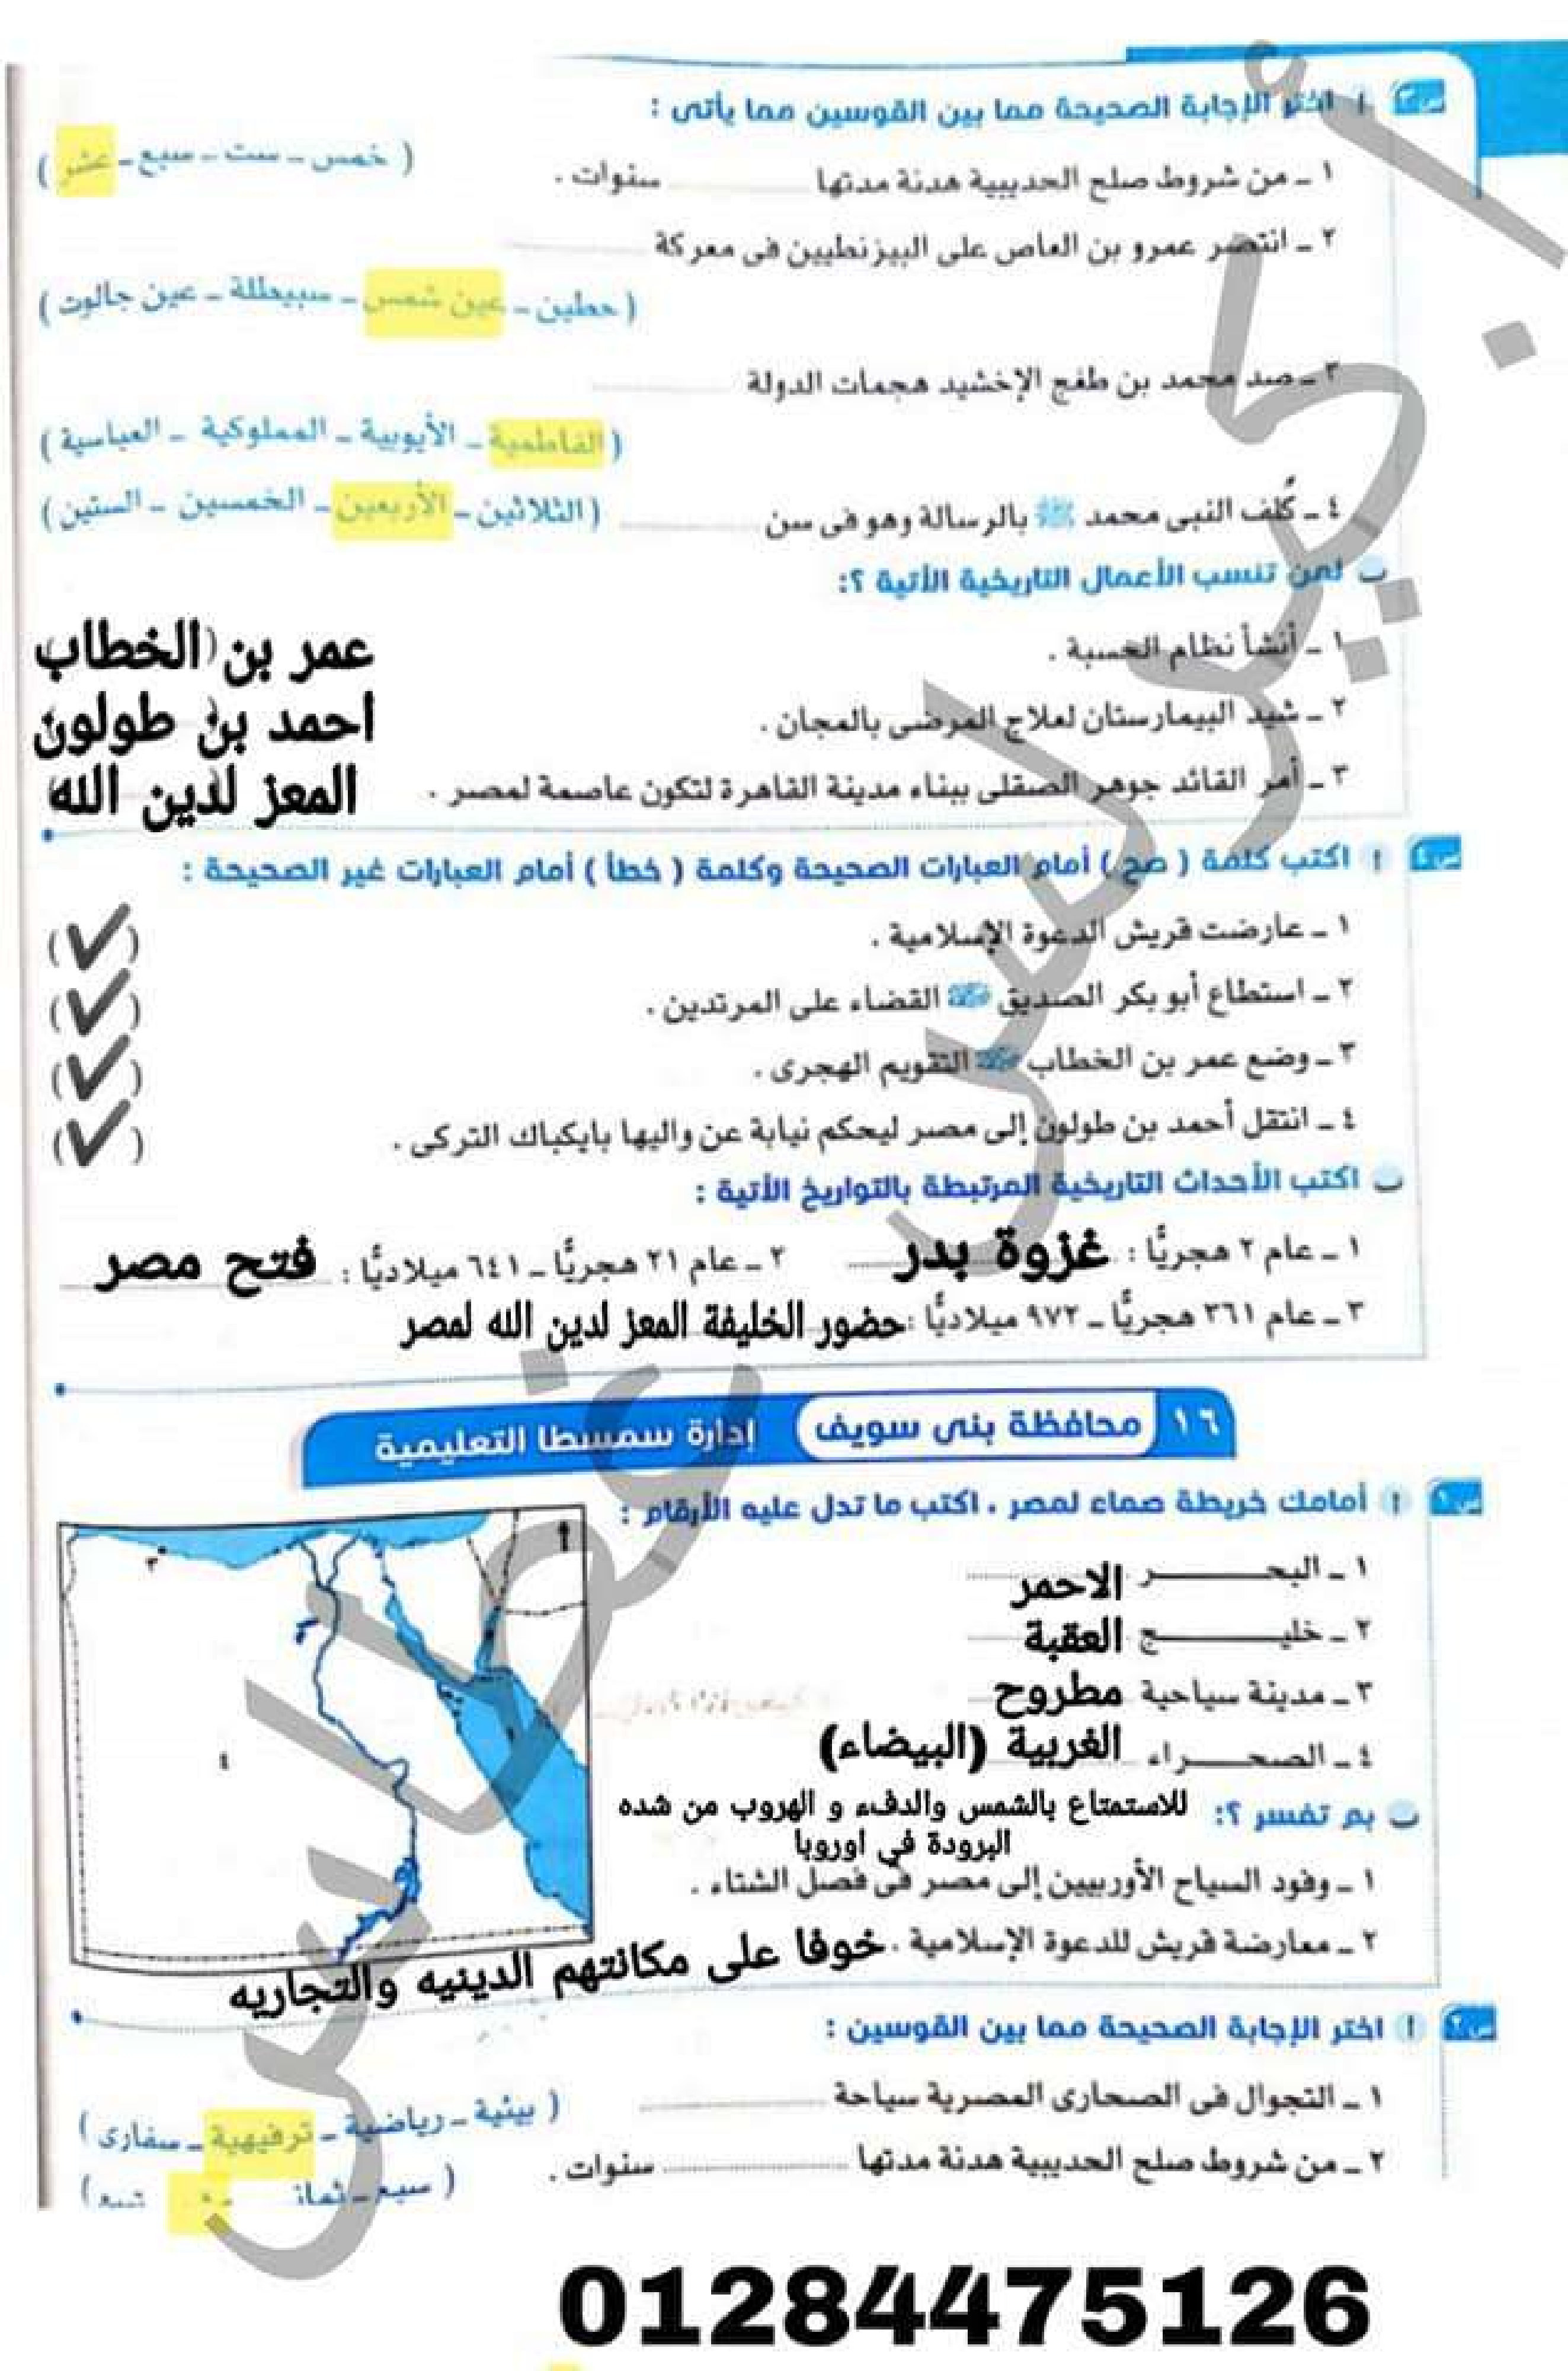 س٣ أ اختر الإجابة الصحيحة مما بين القوسين مما يأتى :
١ ـ من شروط صلح الحديبية هدنة مدتها ............ سنوات . ( خمس ـ ست ـ سبع ـ عشر )
٢ ـ انتصر عمرو بن العاص على البيزنطيين فى معركة ............
( حطين ـ عين شمس ـ سبيطلة ـ عين جالوت )
٣ ـ صد محمد بن طغج الإخشيد هجمات الدولة ............
( الفاطمية ـ الأيوبية ـ المملوكية ـ العباسية )
٤ ـ كُلف النبى محمد ﷺ بالرسالة وهو فى سن ............ ( الثلاثين ـ الأربعين ـ الخمسين ـ الستين )
ب لمن تنسب الأعمال التاريخية الأتية ؟:
١ ـ أنشأ نظام الحسبة . عمر بن الخطاب
٢ ـ شيد البيمارستان لعلاج المرضى بالمجان . احمد بن طولون
٣ ـ أمر القائد جوهر الصقلى ببناء مدينة القاهرة لتكون عاصمة لمصر . المعز لدين الله
س٤ أ اكتب كلمة ( صح ) أمام العبارات الصحيحة وكلمة ( خطأ ) أمام العبارات غير الصحيحة :
١ ـ عارضت قريش الدعوة الإسلامية . (✓)
٢ ـ استطاع أبو بكر الصديق القضاء على المرتدين . (✓)
٣ ـ وضع عمر بن الخطاب التقويم الهجرى . (✓)
٤ ـ انتقل أحمد بن طولون إلى مصر ليحكم نيابة عن واليها بايكباك التركى . (✓)
ب اكتب الأحداث التاريخية المرتبطة بالتواريخ الأتية :
١ ـ عام ٢ هجريًّا : غزوة بدر ٢ ـ عام ٢١ هجريًّا ـ ٦٤١ ميلاديًّا : فتح مصر
٣ ـ عام ٣٦١ هجريًّا ـ ٩٧٢ ميلاديًّا : حضور الخليفة المعز لدين الله لمصر
١٦ محافظة بنى سويف إدارة سمسطا التعليمية
س١ أ أمامك خريطة صماء لمصر ، اكتب ما تدل عليه الأرقام :
١ ـ البحـــر الاحمر
٢ ـ خليـــج العقبة
٣ ـ مدينة سياحية مطروح
٤ ـ الصحـــراء الغربية (البيضاء)
٣
٤
ب بم تفسر ؟: للاستمتاع بالشمس والدفء و الهروب من شده
البرودة في اوروبا
١ ـ وفود السياح الأوربيين إلى مصر فى فصل الشتاء .
٢ ـ معارضة قريش للدعوة الإسلامية . خوفا على مكانتهم الدينيه والتجاريه
س٢ أ اختر الإجابة الصحيحة مما بين القوسين :
١ ـ التجوال فى الصحارى المصرية سياحة ............ ( بيئية ـ رياضية ـ ترفيهية ـ سفارى )
٢ ـ من شروط صلح الحديبية هدنة مدتها ............ سنوات . ( سبع ـ ثمان تسع )
01284475126